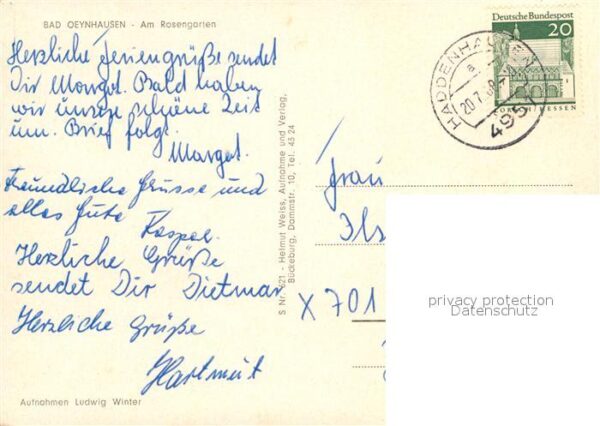 BAD OEYNHAUSEN - Am Rosengarten
Herzliche Feriengrüße sendet
Dir Margot. Bald haben
wir unsere schöne Zeit
um. Brief folgt.
Margot.
Freundliche Grüsse und
alles Gute Kaspar.
Herzliche Grüße
sendet Dir Dietmar
Herzliche Grüße
Hartmut
Aufnahmen Ludwig Winter
S Nr. 621 - Helmut Weiss, Aufnahme und Verlag,
Bückeburg, Dammstr. 10, Tel. 43 24
Deutsche Bundespost
20
LORSCH HESSEN
HADDENHAUSEN
a
20.7.68
495
Frau
Ils
X 701
privacy protection
Datenschutz